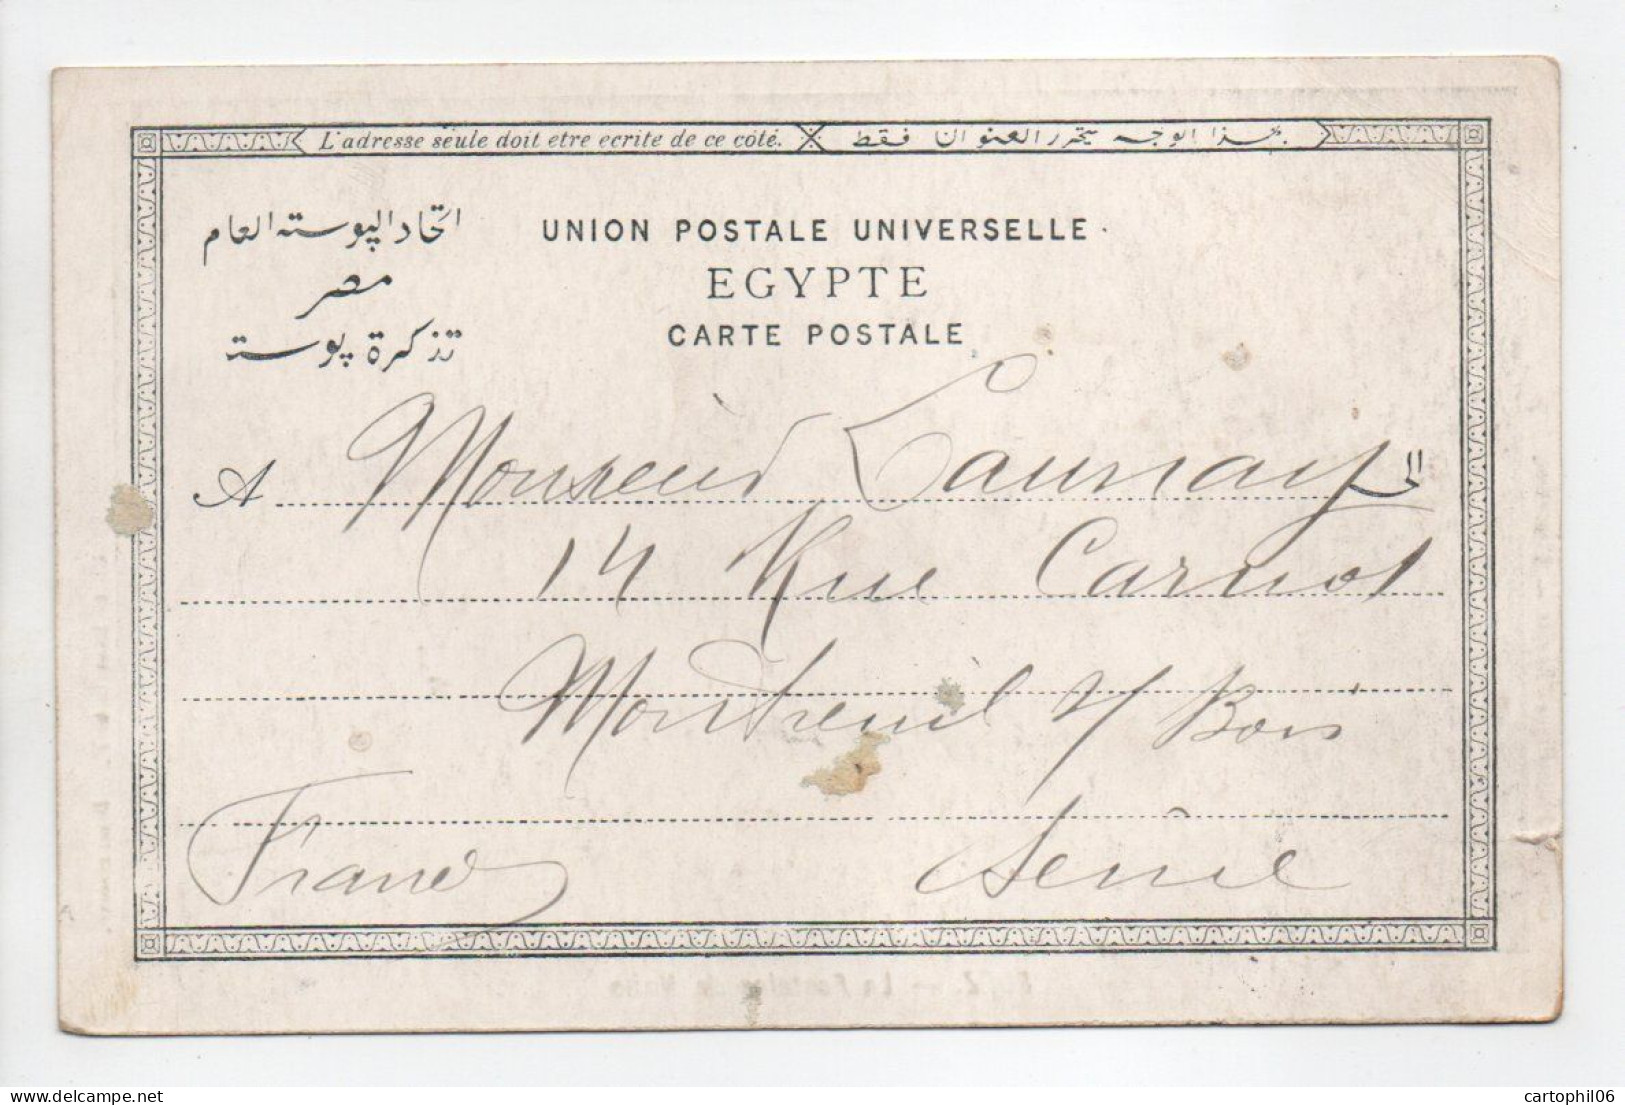 L'adresse seule doit etre ecrite de ce côté. بهذا الوجه يتحرر العنوان فقط
اتحاد البوسته العام UNION POSTALE UNIVERSELLE
مصر EGYPTE
تذكرة بوسته CARTE POSTALE
A Monsieur Launay الى
14 Rue Carnot
Montreuil s/ Bois
France Seine
cartophil06